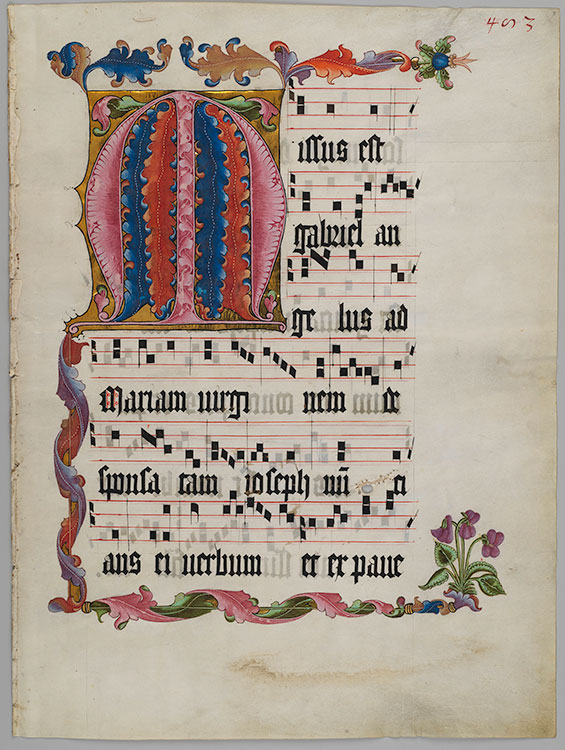 453
Missus est
gabriel an
ge lus ad
Mariam virgi nem de
sponsa tam ioseph nū ci
ans ei verbum et ex pave